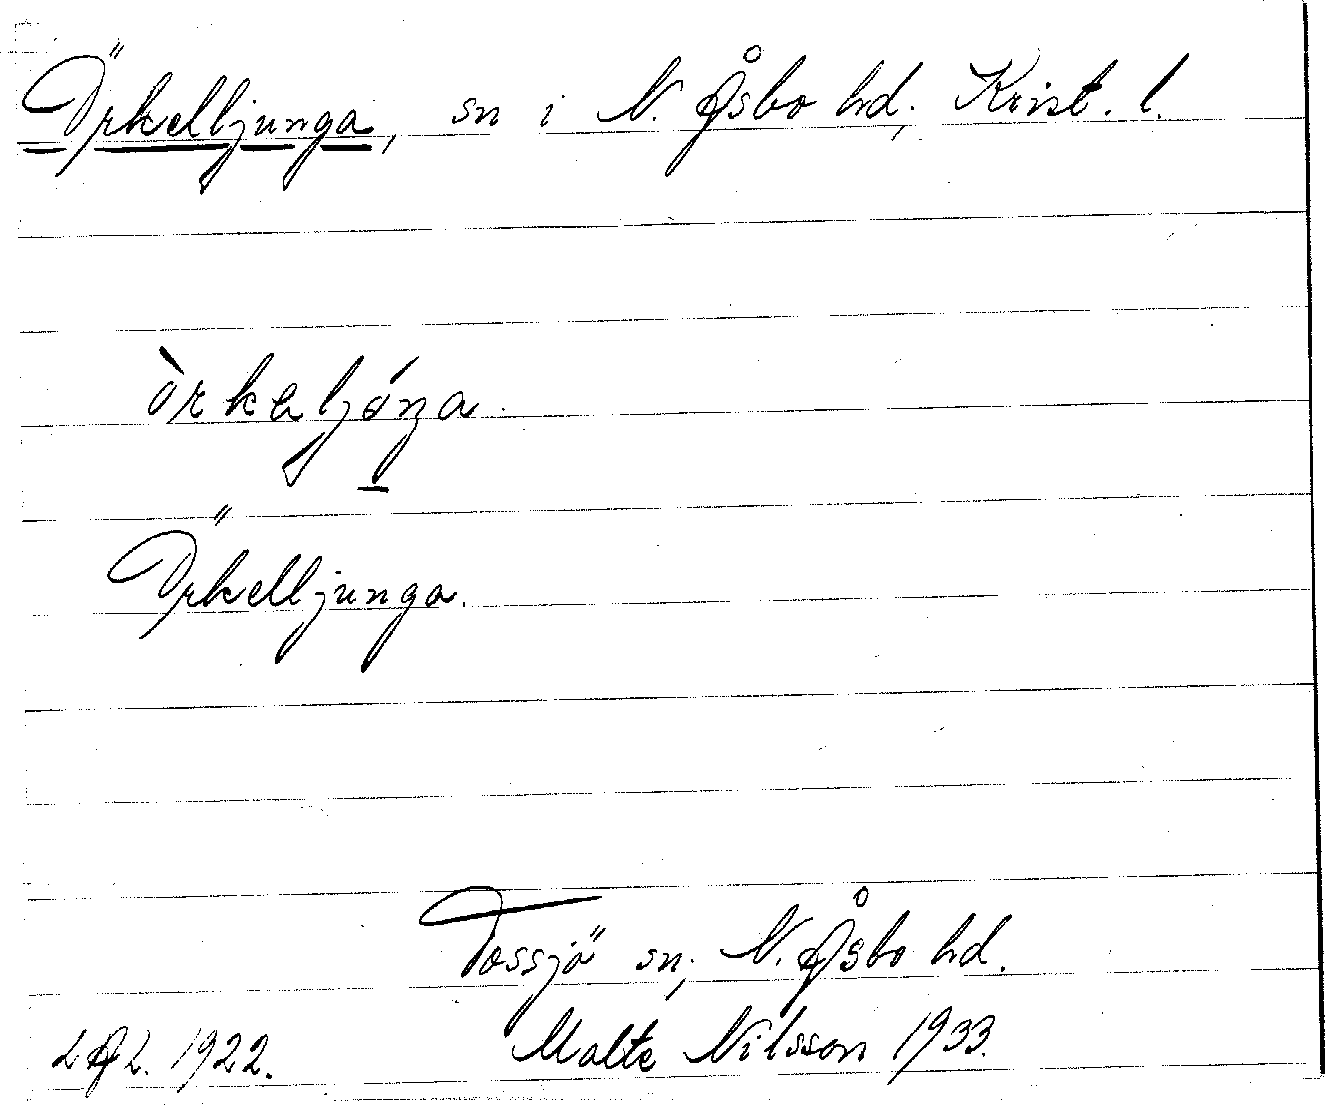 Örkelljunga, sn i N. Åsbo hd, Krist. l.
Örkelljunga.
Tossjö sn, N. Åsbo hd.
1922. Malte Nilsson 1933.